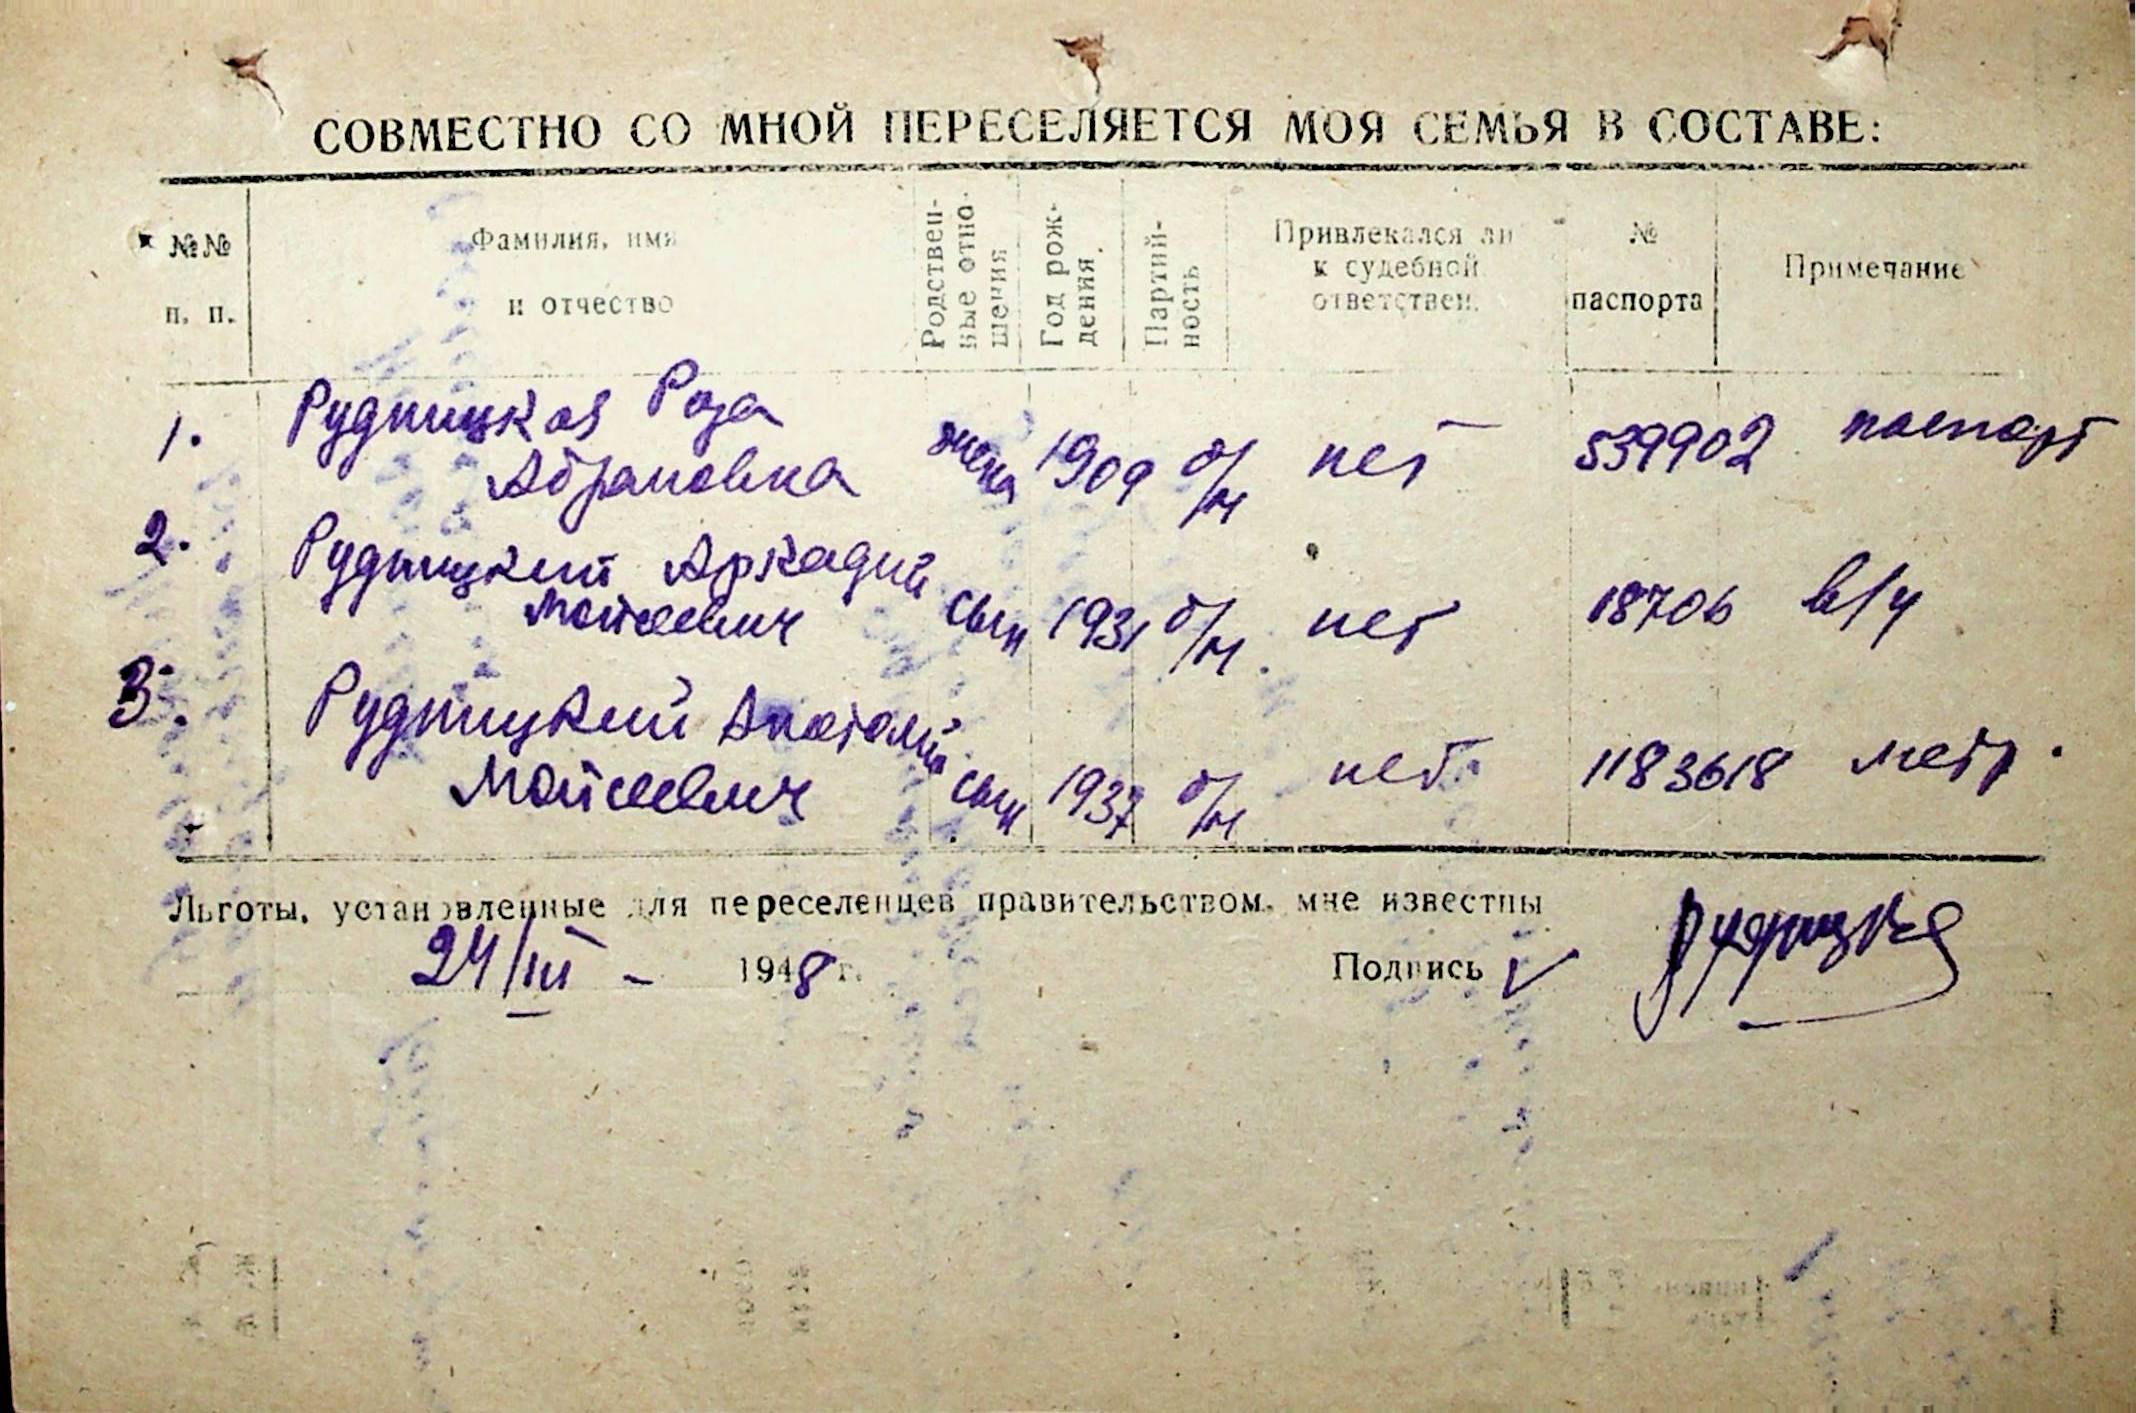 СОВМЕСТНО СО МНОЙ ПЕРЕСЕЛЯЕТСЯ МОЯ СЕМЬЯ В СОСТАВЕ:
№№ п. п.
Фамилия, имя и отчество
Родствен-ные отно-шения
Год рож-дения
Партий-ность
Привлекался ли к судебной ответствен.
№ паспорта
Примечание
1. Рудницкая Роза
Абрамовна жена 1909 б/п нет 539902 паспорт
2. Рудницкий Аркадий
Моисеевич сын 1931 б/п нет 18706 в/ч
3. Рудницкий Анатолий
Моисеевич сын 1937 б/п нет 1183618 метр.
Льготы, установленные для переселенцев правительством, мне известны
24/III - 1948 г. Подпись